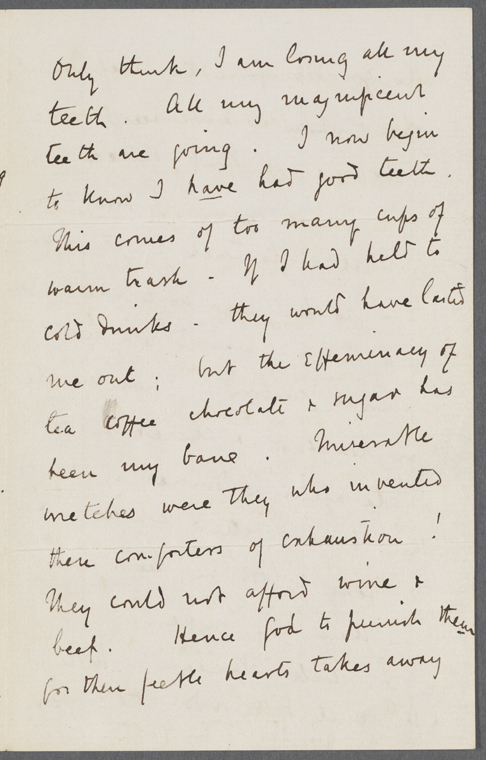 Only think, I am losing all my
teeth. All my magnificent
teeth are going. I now begin
to know I have had good teeth.
This comes of too many cups of
warm trash - If I had held to
cold drinks - they would have lasted
me out; but the effeminacy of
tea coffee chocolate & sugar has
been my bane. Miserable
wretches were they who invented
these comforters of exhaustion!
They could not afford wine &
beef. Hence God to punish them
for their feeble hearts takes away